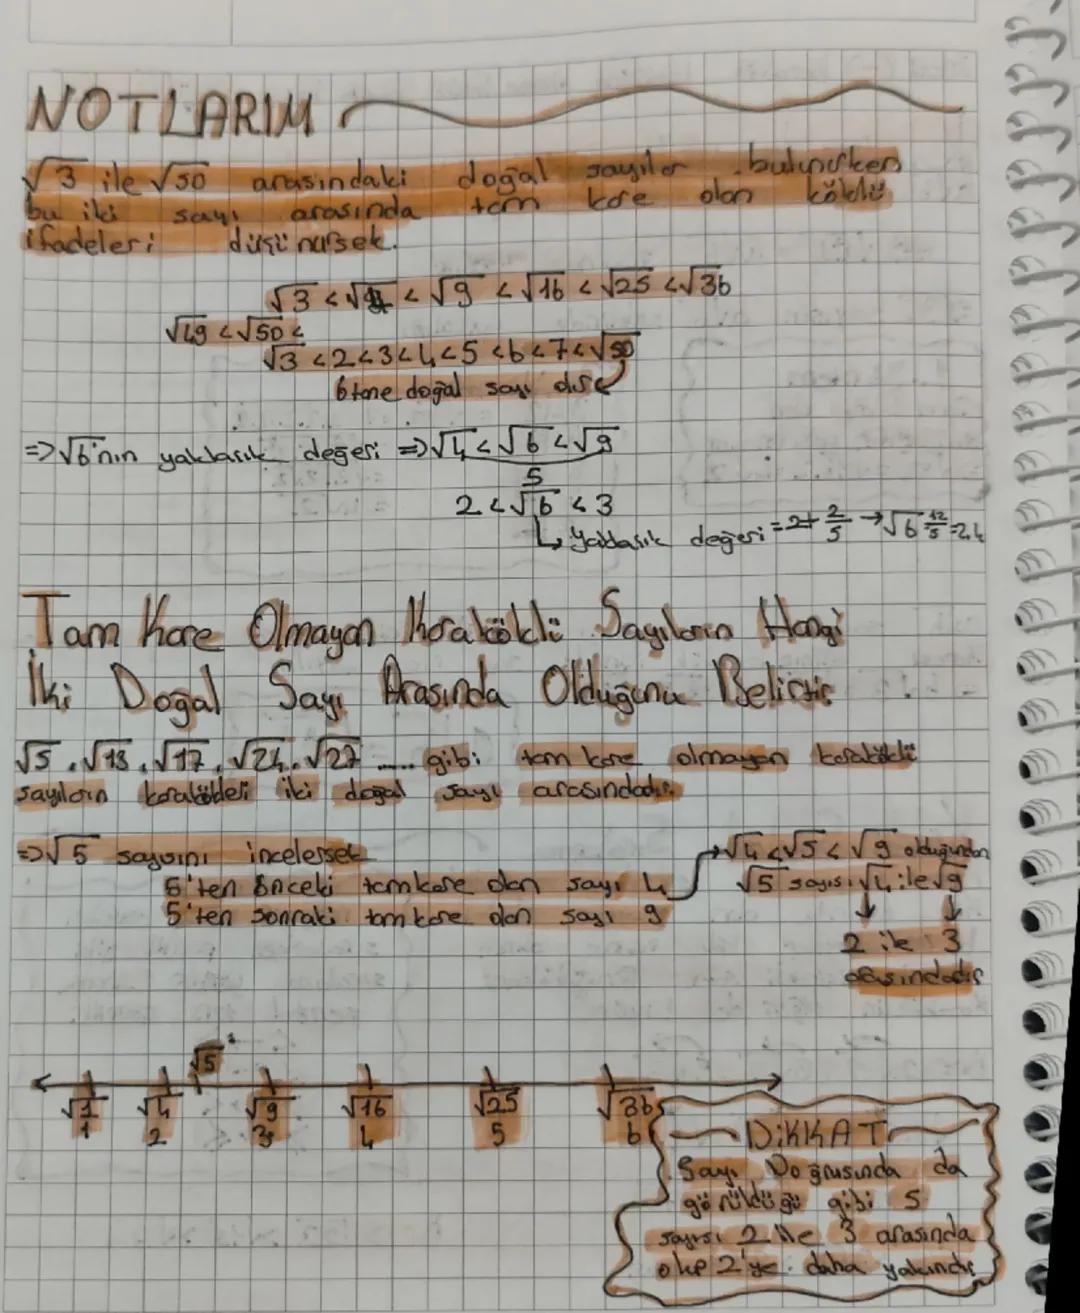 NOTLARIM
√3 ile √50 arasındaki doğal sayılar bulunurken
bu iki sayı arasında tam kare olan köklü
ifadeleri düşünürsek.
√3 < √4 < √9 < √16 < √25 < √36
√49 < √50 <
√3 < 2 < 3 < 4 < 5 < 6 < 7 < √50
6 tane doğal sayı
=> √6'nın yaklaşık değeri => √4 < √6 < √9
5
2 < √6 < 3
↳ yaklaşık değeri = 2+ 2/5 → √6 12/5 = 2,4
Tam Kare Olmayan Karaköklü Sayıların Hangi
İki Doğal Sayı Arasında Olduğunu Belirtir
√5, √13, √17, √24, √27 ...... gibi tam kare olmayan karaköklü
sayıların karakökleri iki doğal sayı arasındadır.
=> √5 sayısını incelersek
5'ten önceki tam kare olan sayı 4
5'ten sonraki tam kare olan sayı 9
√4 < √5 < √9 olduğundan
√5 sayısı √4 ile √9
2 ile 3
arasındadır
√5
√1 √4 √9 √16 √25 √36
1 2 3 4 5 6
DİKKAT
Sayı Doğrusunda da
görüldüğü gibi 5
sayısı 2 ile 3 arasında
olup 2'ye daha yakındır